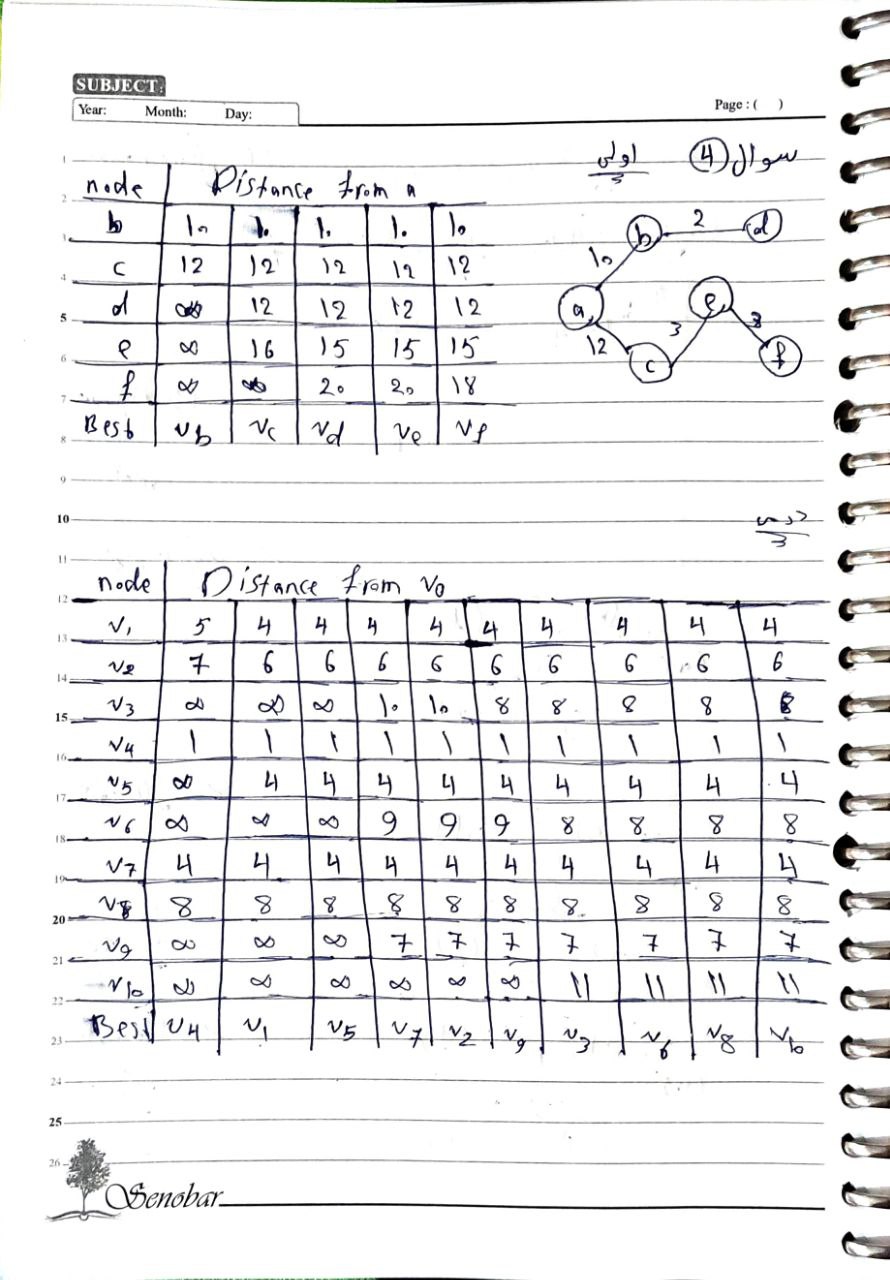 SUBJECT:
Year: Month: Day:
Page : ( )
سوال 4 اولی
node Distance from a
b 1. 1. 1. 1. 1.
c 12 12 12 12 12
d ∞ 12 12 12 12
e ∞ 16 15 15 15
f ∞ ∞ 2. 2. 18
Best vb vc vd ve vf
b 2 d
1.
a e
12 3 3
c f
node Distance from v0
v1 5 4 4 4 4 4 4 4 4 4
v2 7 6 6 6 6 6 6 6 6 6
v3 ∞ ∞ ∞ 1. 1. 8 8 8 8 8
v4 1 1 1 1 1 1 1 1 1 1
v5 ∞ 4 4 4 4 4 4 4 4 4
v6 ∞ ∞ ∞ 9 9 9 8 8 8 8
v7 4 4 4 4 4 4 4 4 4 4
v8 8 8 8 8 8 8 8 8 8 8
v9 ∞ ∞ ∞ 7 7 7 7 7 7 7
v10 ∞ ∞ ∞ ∞ ∞ ∞ 11 11 11 11
Best v4 v1 v5 v7 v2 v9 v3 v6 v8 v10
1
2
3
4
5
6
7
8
9
10
11
12
13
14
15
16
17
18
19
20
21
22
23
24
25
26
Senobar